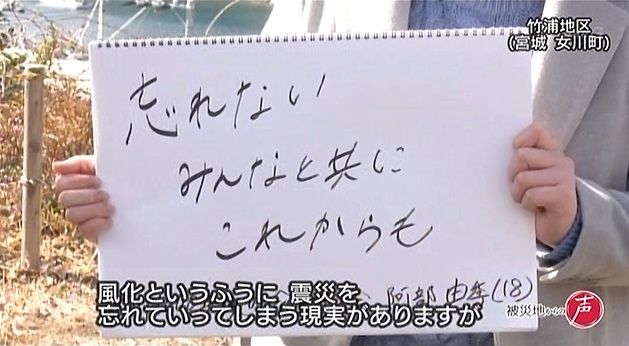 竹浦地区
(宮城 女川町)
忘れない
みんなと共に
これからも
阿部 由季(18)
風化というふうに 震災を
忘れていってしまう現実がありますが
被災地からの声